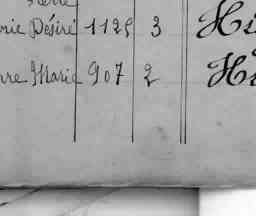 rie Désiré 1125 3 Hi
rre Marie 907 2 Hi